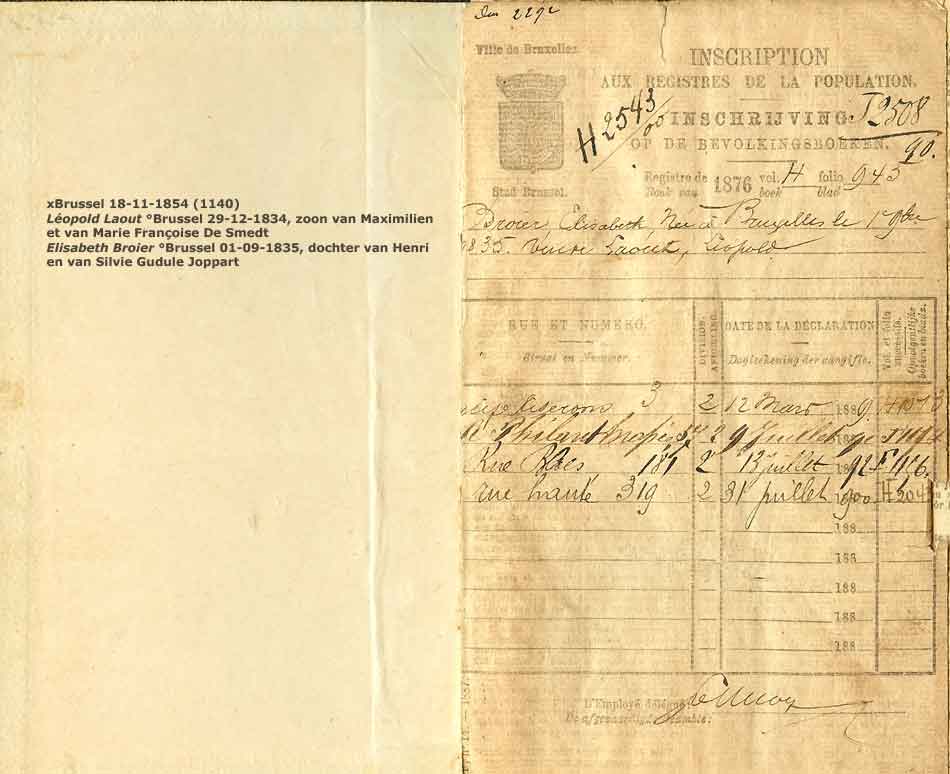 xBrussel 18-11-1854 (1140)
Léopold Laout °Brussel 29-12-1834, zoon van Maximilien
et van Marie Françoise De Smedt
Elisabeth Broier °Brussel 01-09-1835, dochter van Henri
en van Silvie Gudule Joppart
2292
Ville de Bruxelles
Stad Brussel.
INSCRIPTION
AUX REGISTRES DE LA POPULATION.
H 2543
I 2508
90.
INSCHRIJVING
OP DE BEVOLKINGSBOEKEN.
Registre de 1876 vol. H folio 943
Boek van boek blad
Broier, Elisabeth, Née à Bruxelles le 1 9bre
1835. Veuve Laout, Léopold
RUE ET NUMÉRO.
Straat en Nummer.
DIVISION.
AFDEELING.
DATE DE LA DÉCLARATION
Dagteekening der aangifte.
Vol. et folio
successifs.
Opvolgentlijke
boeken en bladz.
3 2 12 Mars 1889.
2 9 Juillet 90
Rue Blaes 181 2 13 juillet 92
rue haute 319 2 31 juillet 1900 H 204
188
188
188
188
188
L'Employé délégué
De afgevaardigde Beambte: